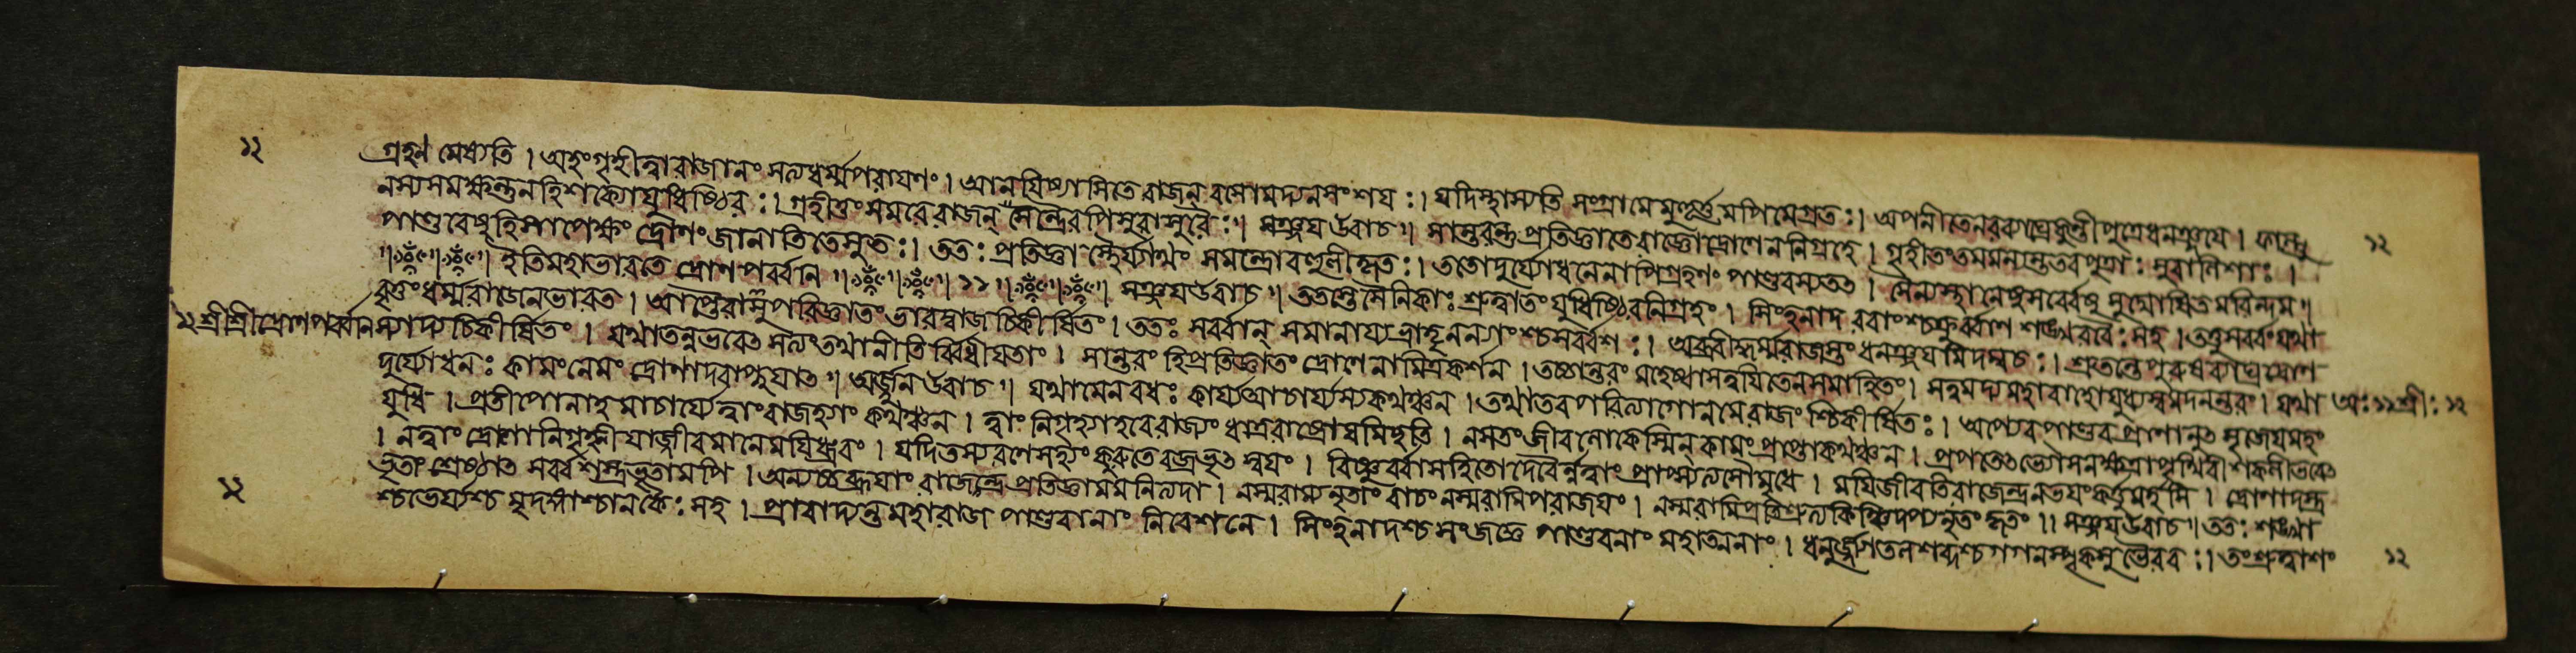 গ্রহণ মেষ্যতি । অহংগৃহীত্বারাজানং সত্যধর্ম্মপরায়ণং । আনয়িষ্যামিতে রাজন্ বসোমদ্যনসংশয়ঃ । যদিস্থাস্যতি সংগ্রামে মুহূর্ত্তমপিমেগ্রতঃ । অপনীতেনরব্যাঘ্রেকুন্তীপুত্রেধনঞ্জয়ে । ফাল্গু
নস্যসমক্ষন্তুনহিশক্যোযুধিষ্ঠিরঃ । গ্রহীতুং সমরেরাজন্ সেন্দ্রৈরপিসুরাসুরৈঃ ॥ সঞ্জয়উবাচ ॥ সান্তরন্তুপ্রতিজ্ঞাতেরাজ্ঞোদ্রোণেননিগ্রহে । গৃহীতংতমমন্যন্ততবপুত্রাঃ সুবালিশাঃ ।
পাণ্ডবেষুহিসাপেক্ষং দ্রোণংজানাতিতেসুতঃ । ততঃ প্রতিজ্ঞাস্থৈর্য্যার্থং সমন্ত্রোবহুলীকৃতঃ । ততোদুর্য্যোধনেনাপিগ্রহণং পাণ্ডবস্যতৎ । সৈন্যস্থানেষুসর্ব্বেষু সুঘোষিতমরিন্দম ॥
॥ ॥ ইতিমহাভারতে দ্রোণপর্ব্বনি ॥ ॥ ১১ ॥ ॥ সঞ্জয়উবাচ ॥ ততস্তেসৈনিকাঃ শ্রুত্বাতংযুধিষ্ঠিরনিগ্রহং । সিংহনাদ রবাংশ্চক্রুর্ব্বাণ শঙ্খরবৈঃ সহ । তত্তুসর্ব্বংযথা
বৃত্তংধর্ম্মরাজেনভারত । আপ্তৈরাসুপরিজ্ঞাতং ভারদ্বাজচিকীর্ষিতং । ততঃ সর্ব্বান্ সমানায্য ভ্রাতৃনন্যাংশ্চসর্ব্বশঃ । অব্রবীদ্ধর্ম্মরাজস্তুধনঞ্জয়মিদম্বচঃ । শ্রুতন্তেপুরুষব্যাঘ্রদ্রোণ
১২ শ্রীশ্রীদ্রোণপর্ব্বনি স্যাদ্যচিকীর্ষিতং । যথাতন্নভবেৎ সত্যংতথানীতির্ব্বিধীয়তাং । সান্তরং হিপ্রতিজ্ঞাতং দ্রোণেনামিত্রকর্শন । তচ্চান্তরং মহেষ্বাসত্বয়িতেনসমাহিতং । সত্বমদ্যমহাবাহোযুধ্যস্বমদনন্তরং । যথা অঃ ১১ শ্রীঃ ১২
দুর্য্যোধনঃ কামংনেমং দ্রোণাদবাপ্নুয়াৎ ॥ অর্জ্জুনউবাচ ॥ যথামেনবধঃ কার্য্যআচার্য্যস্যকথঞ্চন । তথাতবপরিত্যাগোনমেরাজংশ্চিকীর্ষিতঃ । অপ্যেবপাণ্ডবপ্রাণানুৎসৃজেয়মহং
যুধি । প্রতীপোনাহমাচার্য্যেত্বাংবাজহ্যাং কথঞ্চন । ত্বাং নিগৃহ্যাহবেরাজ্যংধার্ত্তরাষ্ট্রোয়মিচ্ছতি । নসতংজীবলোকেস্মিন্ কামং প্রাপ্তাকথঞ্চন । প্রপতেদ্দ্যৌঃসনক্ষত্রাপৃথিবীশকলীভবেৎ
। নত্বাংদ্রোণোনিগৃহ্ণীয়াজ্জীবমানেময়িধ্রুবং । যদিতস্যরণেসহ্যং কুরুতেবজ্রভৃৎ স্বয়ং । বিষ্ণুর্ব্বাসহিতোদেবৈর্ন্নত্বাং প্রাপ্স্যত্যসৌমৃধে । ময়িজীবতিরাজেন্দ্রনভয়ংকর্তুমর্হসি । দ্রোণাদস্ত্র
ভৃতাং শ্রেষ্ঠাৎ সর্ব্বশস্ত্রভৃতামপি । অন্যচ্চব্রূয়াং রাজেন্দ্রপ্রতিজ্ঞাংমমনিত্যদা । নস্মরাম্যনৃতাংবাচং নস্মরামিপরাজয়ং । নস্মরামিপ্রতিশ্রুত্যকিঞ্চিদপ্যনৃতংকৃতং ॥ সঞ্জয়উবাচ ॥ ততঃ শঙ্খা
শ্চভের্য্যশ্চ মৃদঙ্গাশ্চানকৈঃ সহ । প্রাবাদ্যন্তমহারাজ পাণ্ডবানাং নিবেশনে । সিংহনাদশ্চ সংজজ্ঞে পাণ্ডবানাং মহাত্মনাং । ধনুর্জ্যাতলশব্দশ্চগগনস্পৃক্সুভৈরবঃ । তংশ্রুত্বাশং
১২
১২
১২
১২